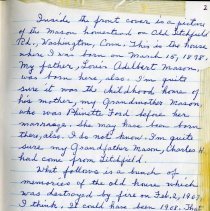 2
Inside the front cover is a picture
of the Mason homestead on Old Litchfield
Rd., Washington, Conn. This is the house
where I was born on March 15, 1898.
My father, Louis Adelbert Mason,
was born here, also. I'm quite
sure it was the childhood home of
his mother, my Grandmother Mason,
who was Phinette Ford before her
marriage. She may have been born
there, also. I do not know. I'm quite
sure my Grandfather Mason, Charles H.
had come from Litchfield.
What follows is a bunch of
memories of the old house which
was destroyed by fire on Feb. 2, 1907,
I think. It could have been 1908. That